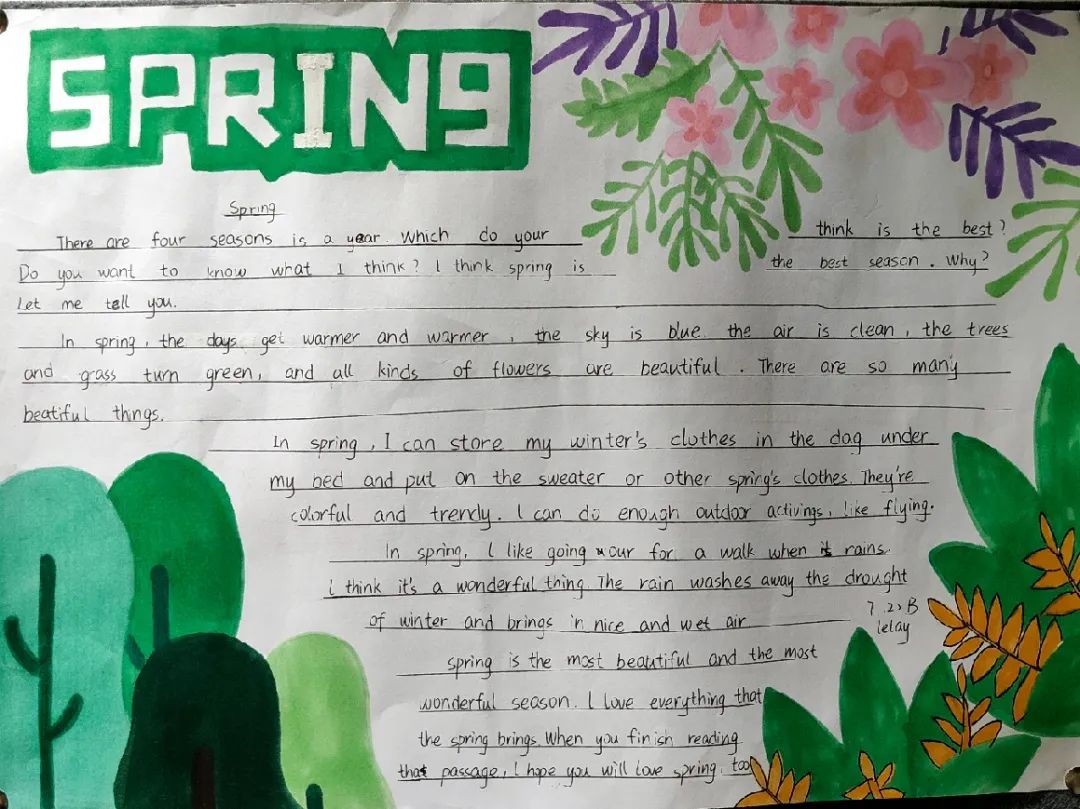 SPRING
Spring
There are four seasons is a year. Which do your think is the best?
Do you want to know what I think? I think spring is the best season. Why?
Let me tell you.
In spring, the days get warmer and warmer, the sky is blue. the air is clean, the trees
and grass turn green, and all kinds of flowers are beautiful. There are so many
beatiful things.
In spring, I can store my winter's clothes in the dag under
my bed and put on the sweater or other spring's clothes. They're
colorful and trendy. I can do enough outdoor activings, like flying.
In spring, I like going our for a walk when it rains.
i think it's a wonderful thing. The rain washes away the drought
of winter and brings in nice and wet air
7.2
lelay
spring is the most beautiful and the most
wonderful season. I love everything that
the spring brings. When you finish reading
that passage, I hope you will love spring, too